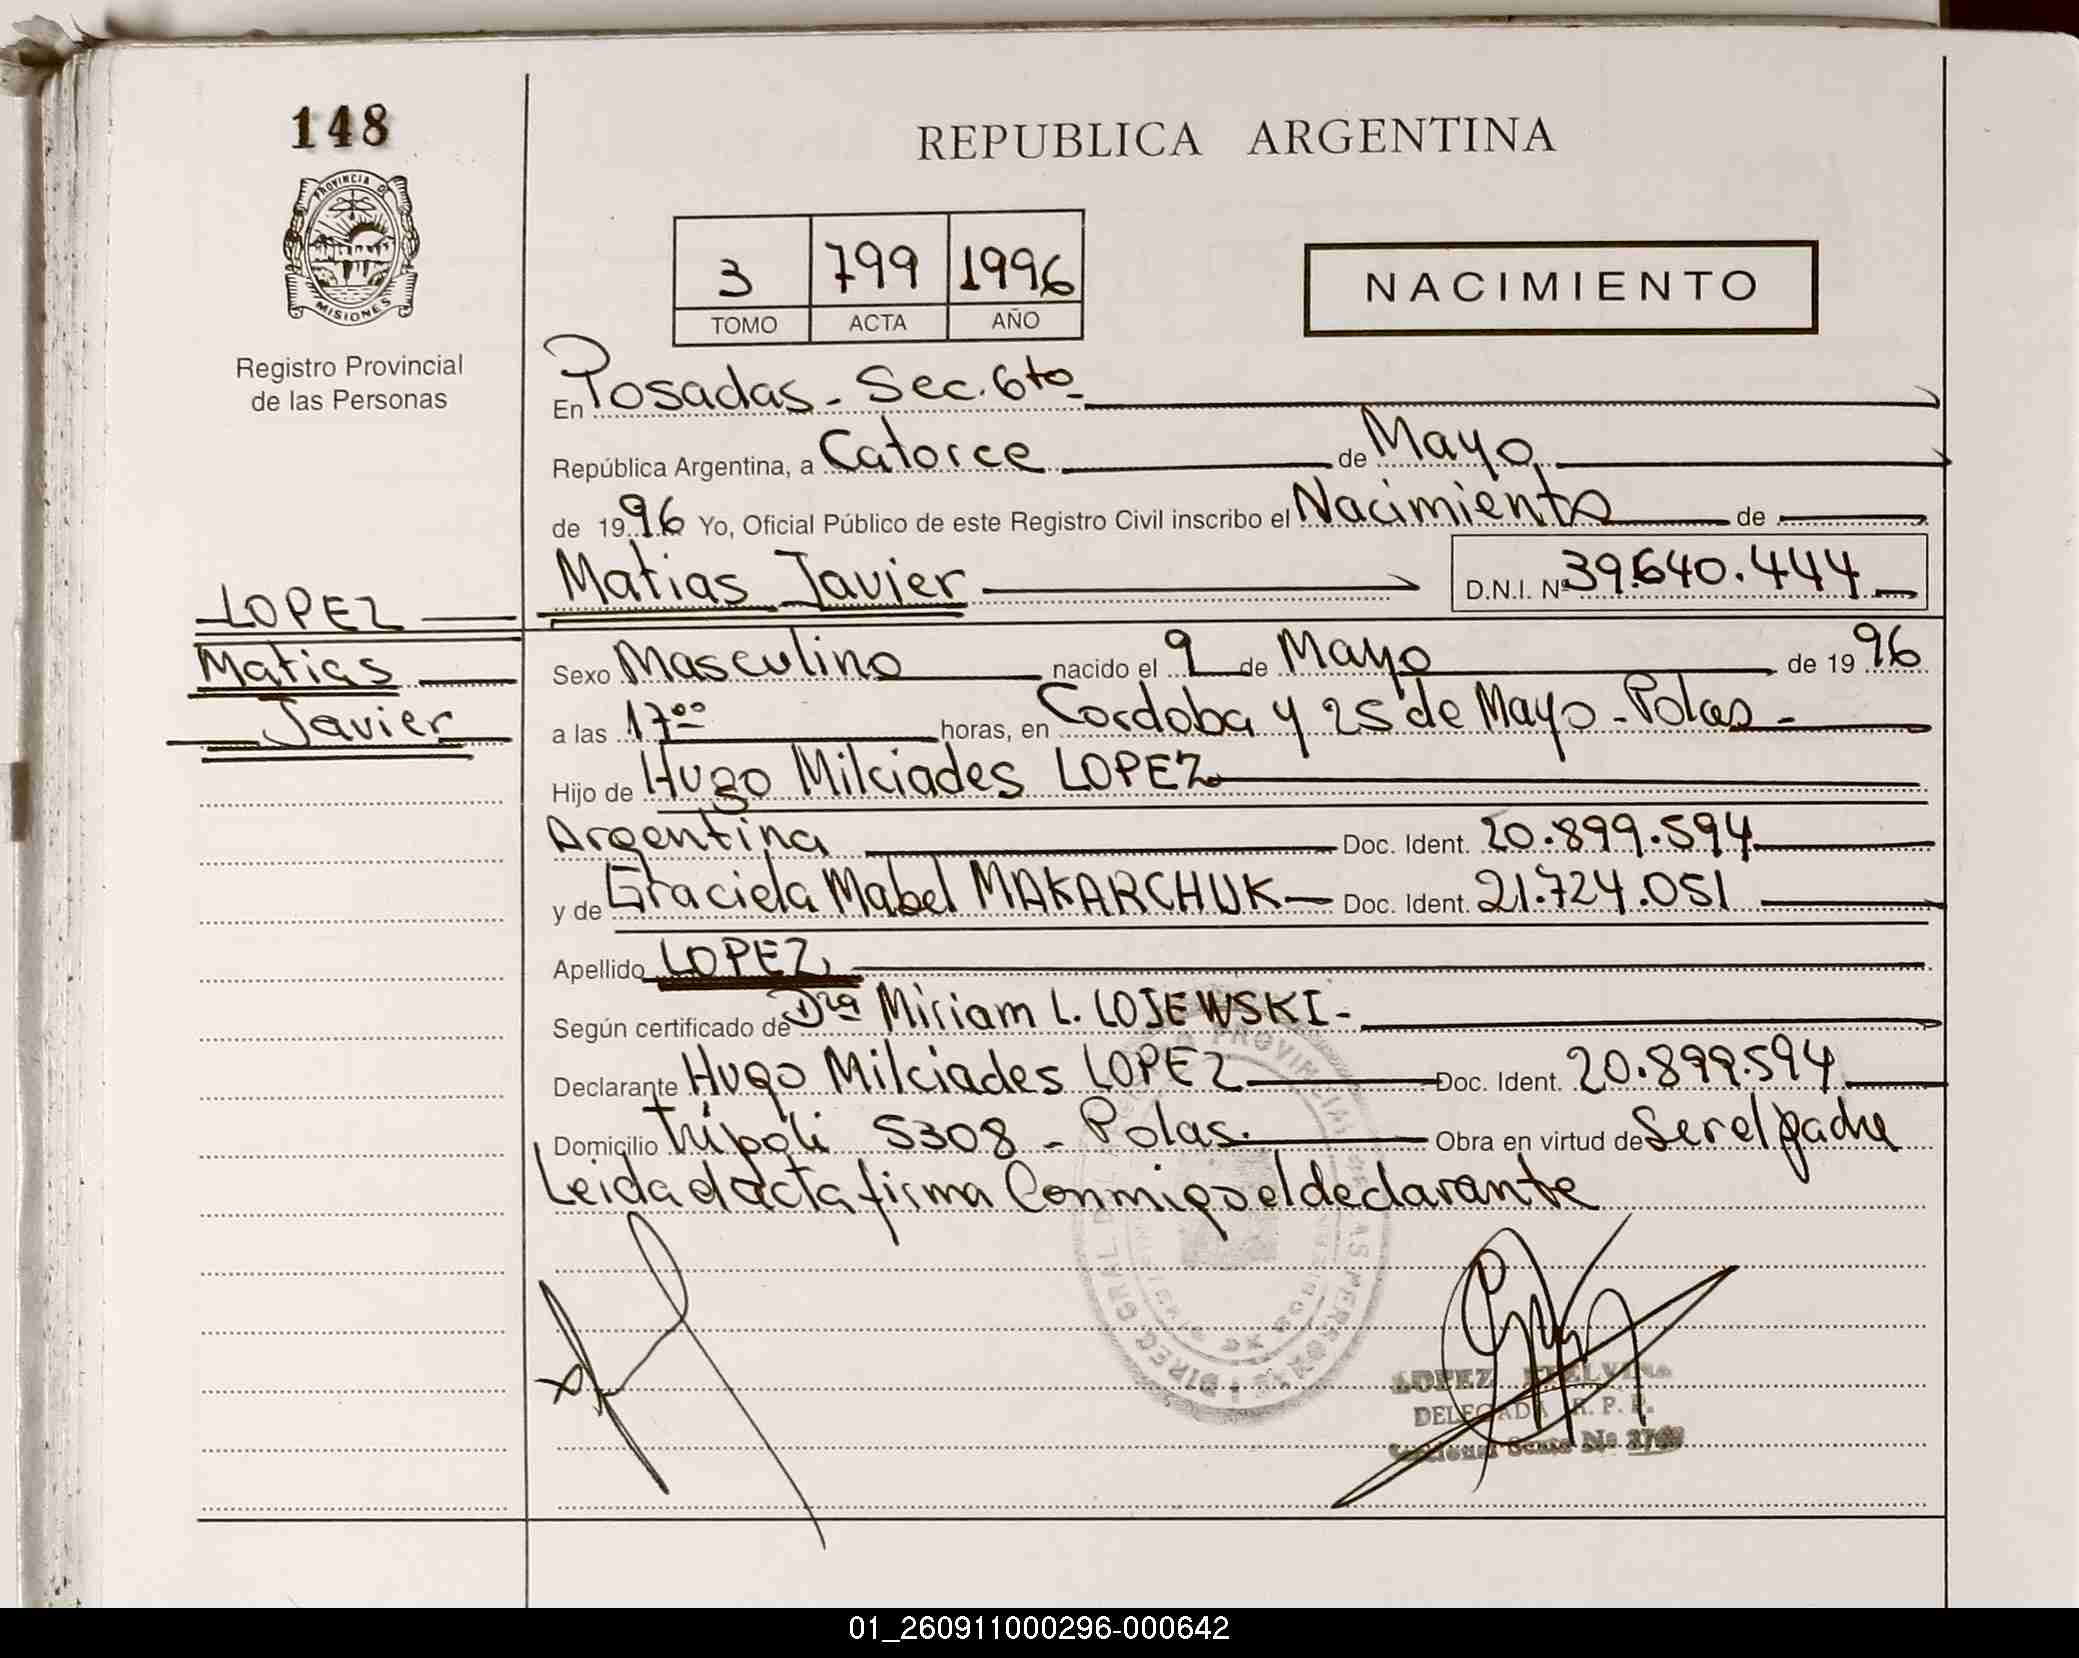 148
REPUBLICA ARGENTINA
PROVINCIA DE
MISIONES
3 799 1996
TOMO ACTA AÑO
NACIMIENTO
Registro Provincial
de las Personas
En Posadas - Sec. 6to -
República Argentina, a Catorce de Mayo
de 1996 Yo, Oficial Público de este Registro Civil inscribo el Nacimiento de
Matias Javier D.N.I. Nº 39.640.444
LOPEZ
Matias
Javier
Sexo Masculino nacido el 9 de Mayo de 1996
a las 17⁰⁰ horas, en Cordoba y 25 de Mayo - Pdas -
Hijo de Hugo Milciades LOPEZ
Argentina Doc. Ident. 20.899.594
y de Graciela Mabel MAKARCHUK Doc. Ident. 21.724.051
Apellido LOPEZ
Según certificado de Dra Miriam L. LOJEWSKI -
Declarante Hugo Milciades LOPEZ Doc. Ident. 20.899.594
Domicilio Tripoli 5308 - Pdas. Obra en virtud de Ser el padre
Leida el acta firma Conmigo el declarante
LOPEZ
DELEGADA R. P. P.
01_260911000296-000642